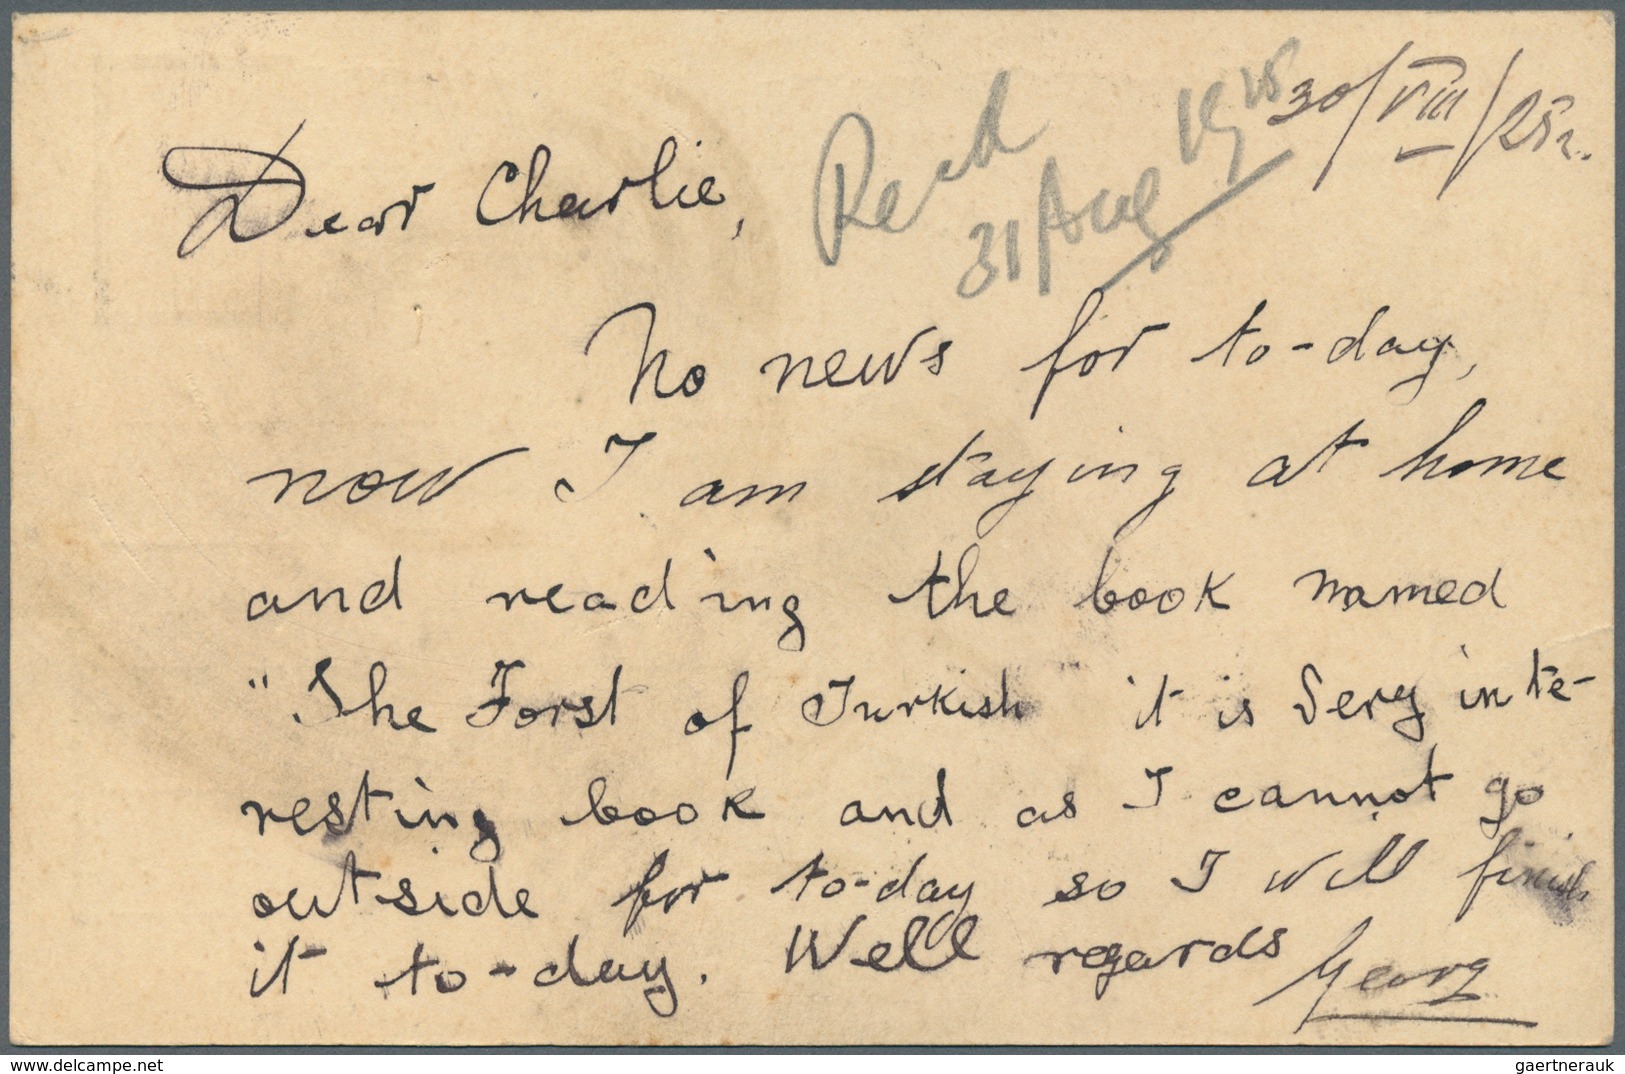 30/VIII/25
Recd
31 Aug 1925
Dear Charlie,
No news for to-day,
now I am staying at home
and reading the book named
"The Forst of Turkish it is Very inte-
resting book and as I cannot go
outside for to-day so I will finish
it to-day. Well regards
Georg
www.delcampe.net
gaertnerauk